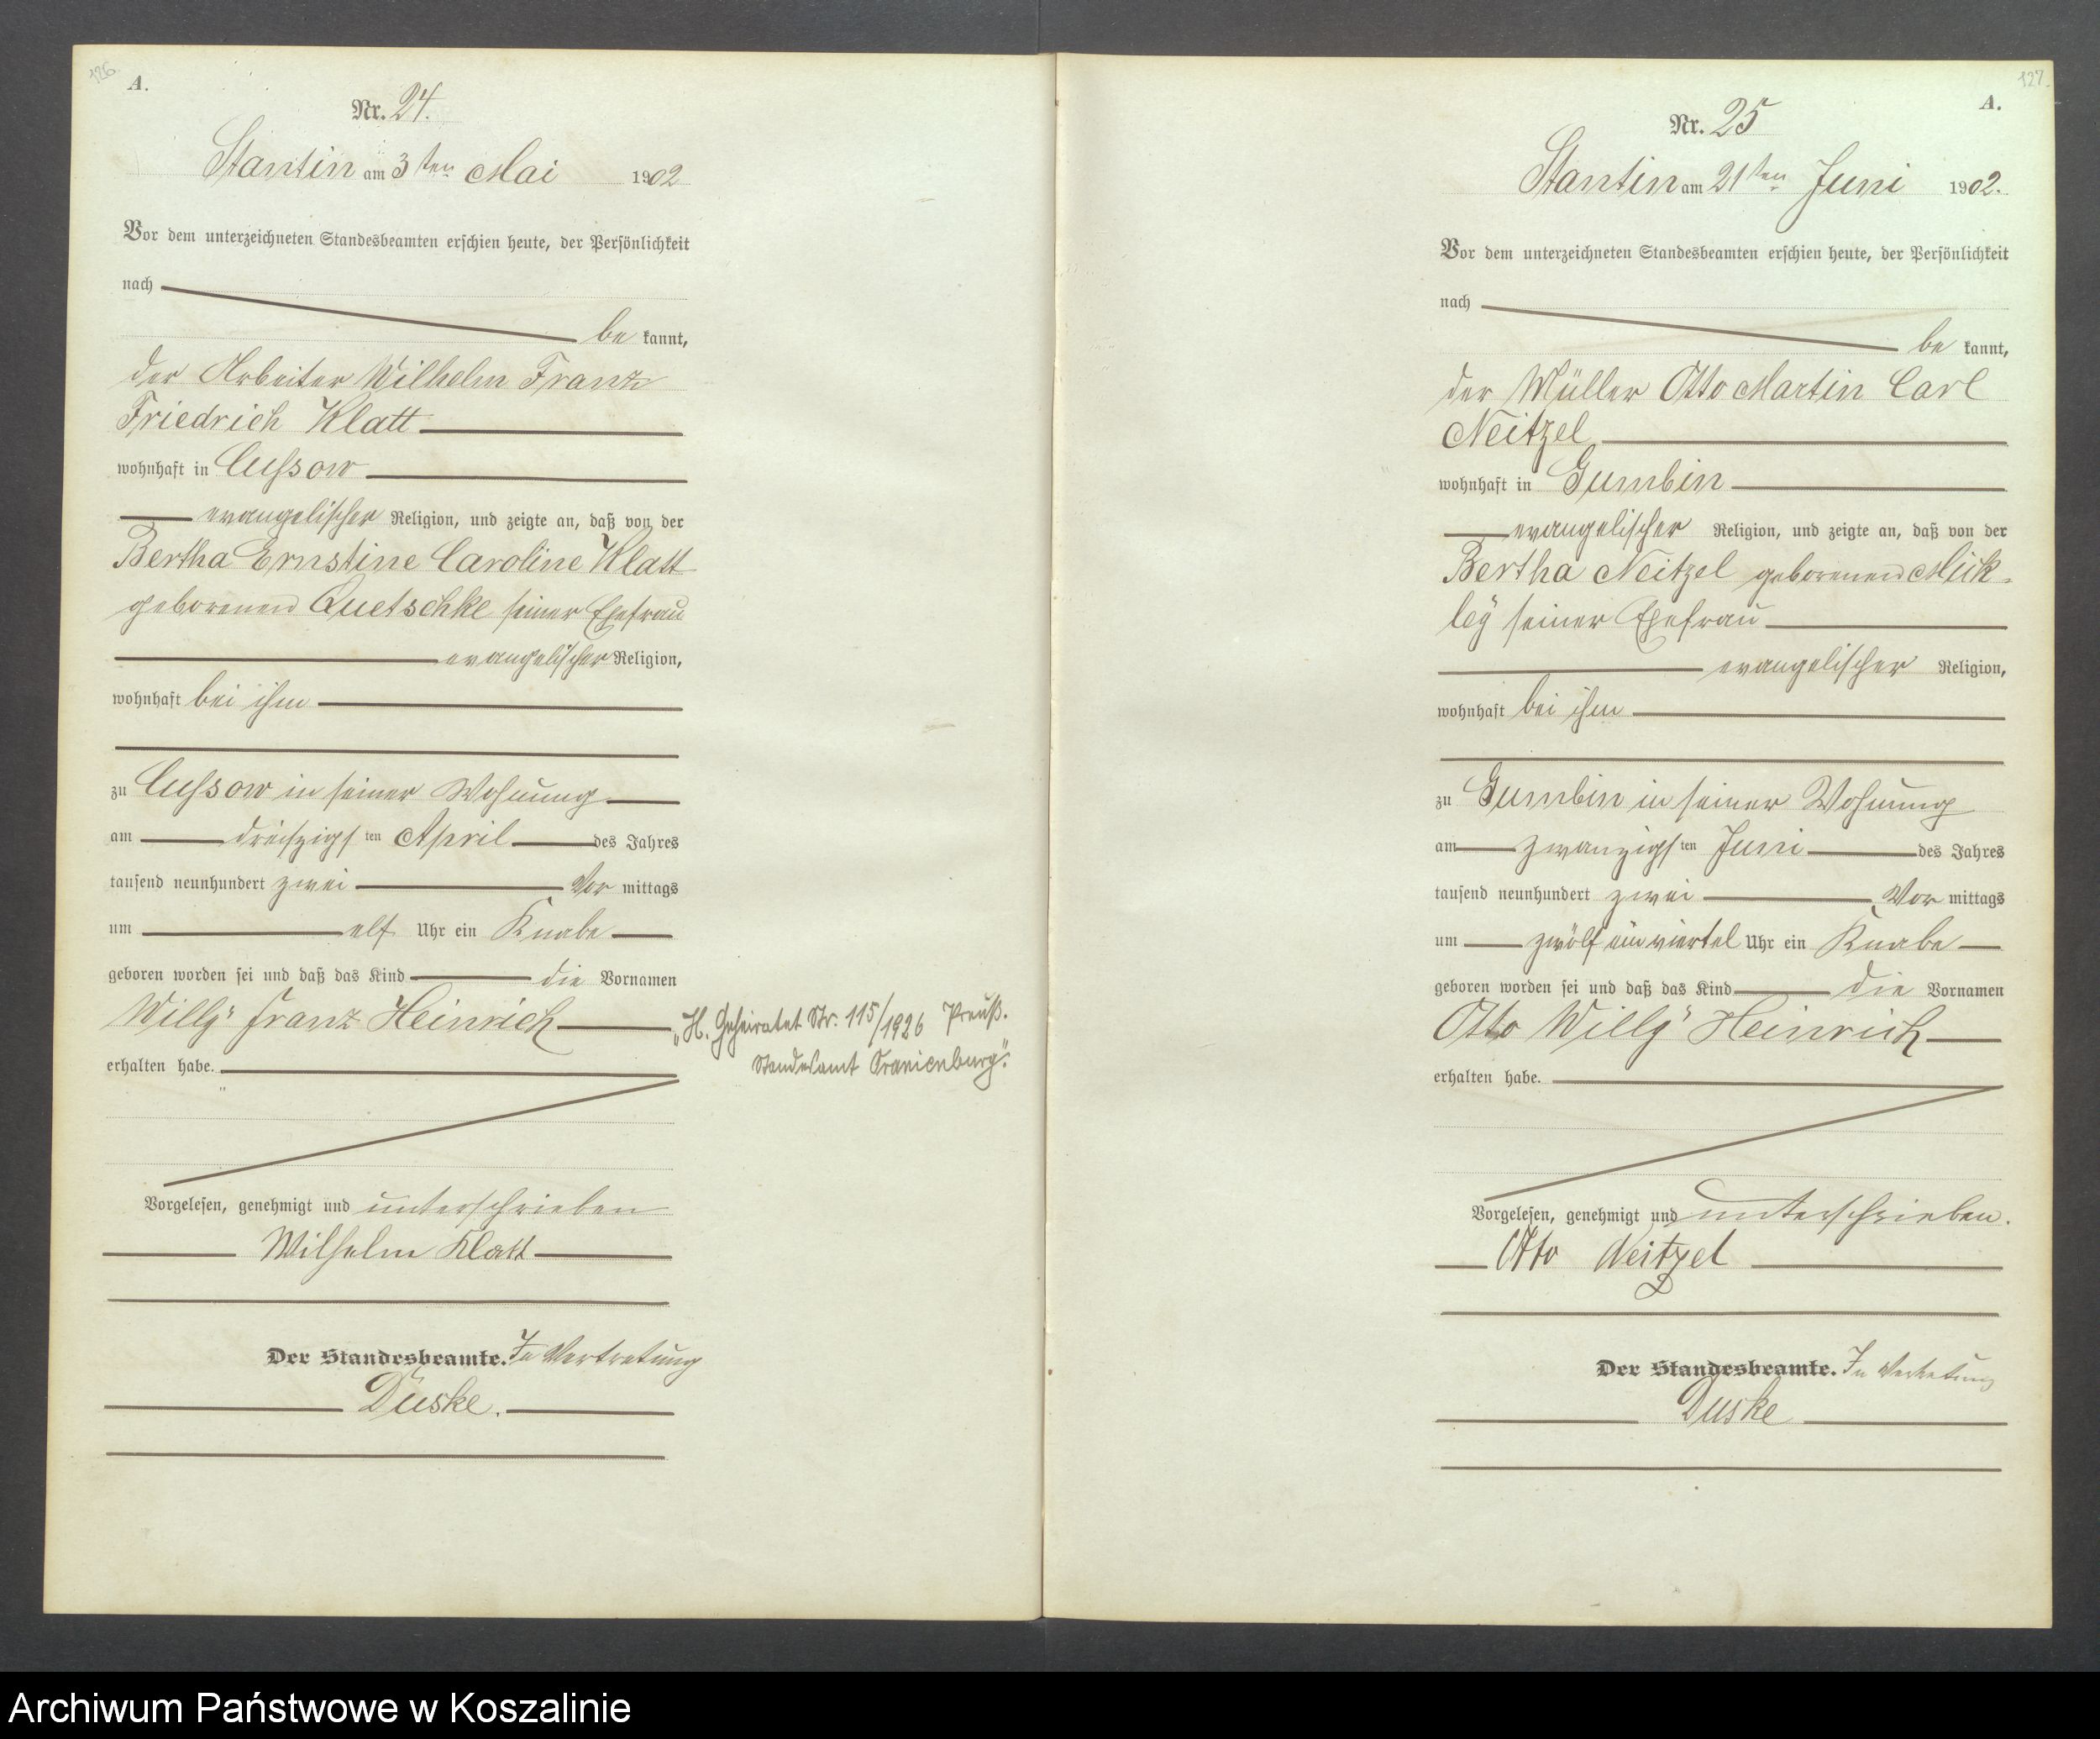 126.
A.
Nr. 24.
Stantin am 3 ten Mai 1902
Vor dem unterzeichneten Standesbeamten erschien heute, der Persönlichkeit
nach
be kannt,
der Arbeiter Wilhelm Franz
Friedrich Klatt
wohnhaft in Cussow
evangelischer Religion, und zeigte an, daß von der
Bertha Ernstine Caroline Klatt
geborenen Quetschke seiner Ehefrau
evangelischer Religion,
wohnhaft bei ihm
zu Cussow in seiner Wohnung
am dreiszigs ten April des Jahres
tausend neunhundert zwei Vor mittags
um elf Uhr ein Knabe
geboren worden sei und daß das Kind die Vornamen
Willy Franz Heinrich
erhalten habe.
„H. Geheiratet Nr. 115/1926 Preuß.
Standesamt Oranienburg".
Vorgelesen, genehmigt und unterschrieben
Wilhelm Klatt
Der Standesbeamte. In Vertretung
Duske.
127.
A.
Nr. 25
Stantin am 21 ten Juni 1902.
Vor dem unterzeichneten Standesbeamten erschien heute, der Persönlichkeit
nach
be kannt,
der Müller Otto Martin Carl
Neitzel
wohnhaft in Gumbin
evangelischer Religion, und zeigte an, daß von der
Bertha Neitzel geborenen Mick-
ley seiner Ehefrau
evangelischer Religion,
wohnhaft bei ihm
zu Gumbin in seiner Wohnung
am zwanzigs ten Juni des Jahres
tausend neunhundert zwei Vor mittags
um zwölf ein viertel Uhr ein Knabe
geboren worden sei und daß das Kind die Vornamen
Otto Willy Heinrich
erhalten habe.
Vorgelesen, genehmigt und unterschrieben.
Otto Neitzel
Der Standesbeamte. In Vertretung
Duske
Archiwum Państwowe w Koszalinie